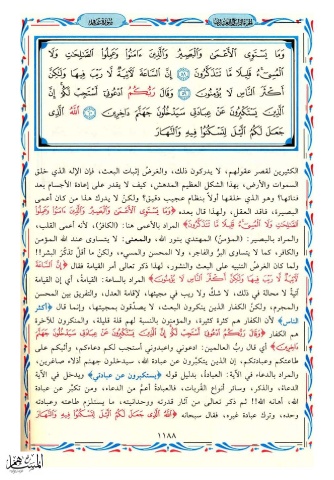 وَمَا يَسْتَوِى ٱلْأَعْمَىٰ وَٱلْبَصِيرُ وَٱلَّذِينَ ءَامَنُوا۟ وَعَمِلُوا۟ ٱلصَّٰلِحَٰتِ وَلَا
ٱلْمُسِىٓءُ قَلِيلًا مَّا تَتَذَكَّرُونَ ۝٥٨ إِنَّ ٱلسَّاعَةَ لَءَاتِيَةٌ لَّا رَيْبَ فِيهَا وَلَٰكِنَّ
أَكْثَرَ ٱلنَّاسِ لَا يُؤْمِنُونَ ۝٥٩ وَقَالَ رَبُّكُمُ ٱدْعُونِىٓ أَسْتَجِبْ لَكُمْ إِنَّ
ٱلَّذِينَ يَسْتَكْبِرُونَ عَنْ عِبَادَتِى سَيَدْخُلُونَ جَهَنَّمَ دَاخِرِينَ ۝٦٠ ٱللَّهُ ٱلَّذِى
جَعَلَ لَكُمُ ٱلَّيْلَ لِتَسْكُنُوا۟ فِيهِ وَٱلنَّهَارَ
الكثيرين لقصر عقولهم، لا يدركون ذلك، والغرضُ إثبات البعث، فإن الإله الذي خلق
السموات والأرض، بهذا الشكل العظيم المدهش، كيف لا يقدر على إعادة الأجسام بعد
فنائها؟! وهو الذي خلقها أولاً بنظام عجيب دقيق؟ ولكنْ لا يدرك هذا من كان أعمى
البصيرة، فاقد العقل، ولهذا قال بعده: ﴿وَمَا يَسْتَوِى ٱلْأَعْمَىٰ وَٱلْبَصِيرُ وَٱلَّذِينَ ءَامَنُوا۟ وَعَمِلُوا۟
ٱلصَّٰلِحَٰتِ وَلَا ٱلْمُسِىٓءُ قَلِيلًا مَّا تَتَذَكَّرُونَ﴾ المراد بالأعمى هنا: (الكافرُ)، لأنه أعمى القلب،
والمراد بالبصير: (المؤمنُ) المهتدي بنور الله، والمعنى: لا يتساوى عند الله المؤمن
والكافر، كما لا يتساوى البرُّ والفاجر، ولا المحسن والمسيء، ولكنْ ما أقلَّ تذكّر البشر!!
ولما كان الغرضُ التنبيه على البعث والنشور، لهذا ذكر تعالى أمر القيامة فقال ﴿إِنَّ ٱلسَّاعَةَ
لَءَاتِيَةٌ لَّا رَيْبَ فِيهَا وَلَٰكِنَّ أَكْثَرَ ٱلنَّاسِ لَا يُؤْمِنُونَ﴾ المراد بالساعة: القيامةُ، أي إن القيامة
آتيةٌ لا محالة في ذلك، لا شكَّ ولا ريب في مجيئها، لإقامة العدل، والتفريق بين المحسن
والمجرم، ولكنَّ الكفار الذين ينكرون البعث، لا يصدِّقون بمجيئها، وإنما قال ﴿أكثر
الناس﴾ لأن الكفار هم كثرة كثيرة، والمؤمنون بالنسبة لهم قلة قليلة، والمنكرون للآخرة
هم الكفار ﴿وَقَالَ رَبُّكُمُ ٱدْعُونِىٓ أَسْتَجِبْ لَكُمْ إِنَّ ٱلَّذِينَ يَسْتَكْبِرُونَ عَنْ عِبَادَتِى سَيَدْخُلُونَ جَهَنَّمَ
دَاخِرِينَ﴾ أي قال ربُّ العالمين: ادعوني واعبدوني أستجب لكم دعاءكم، وأثيبكم على
طاعتكم وعبادتكم، إن الذين يتكبَّرون عن عبادة الله، سيدخلون جهنم أذلاء صاغرين،
والمراد بالدعاء في الآية: العبادةُ، بدليل قوله ﴿يستكبرون عن عبادتي﴾ ويدخل في الآية
الدعاءُ، والذكر، وسائر أنواع القُربات، فالعبادةُ أعمُّ من الدعاء، ومن تكبَّر عن عبادة
الله، أهانه الله!! ثم ذكر تعالى من آثار قدرته ووحدانيته، ما يستلزم طاعته وعبادته
وحده، وترك عبادة غيره، فقال سبحانه ﴿ٱللَّهُ ٱلَّذِى جَعَلَ لَكُمُ ٱلَّيْلَ لِتَسْكُنُوا۟ فِيهِ وَٱلنَّهَارَ
١١٨٨